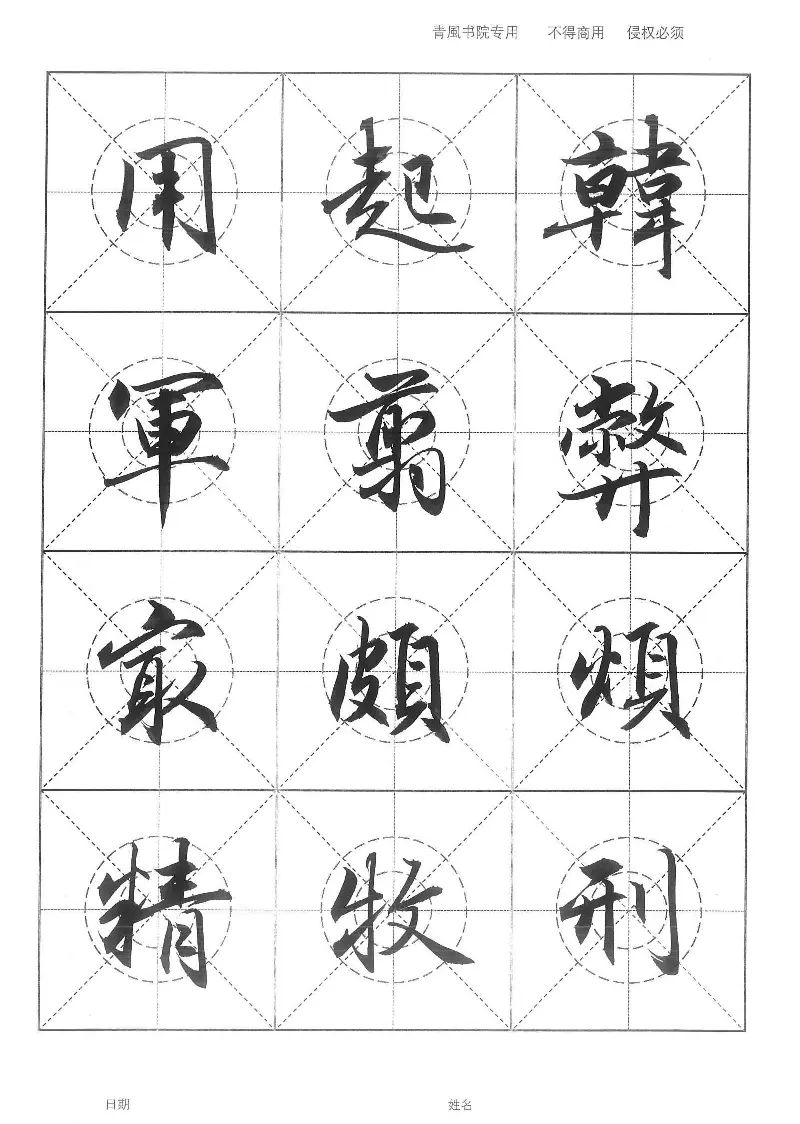 青風书院专用 不得商用 侵权必须
韓弊煩刑
起翦頗牧
用軍最精
日期 姓名